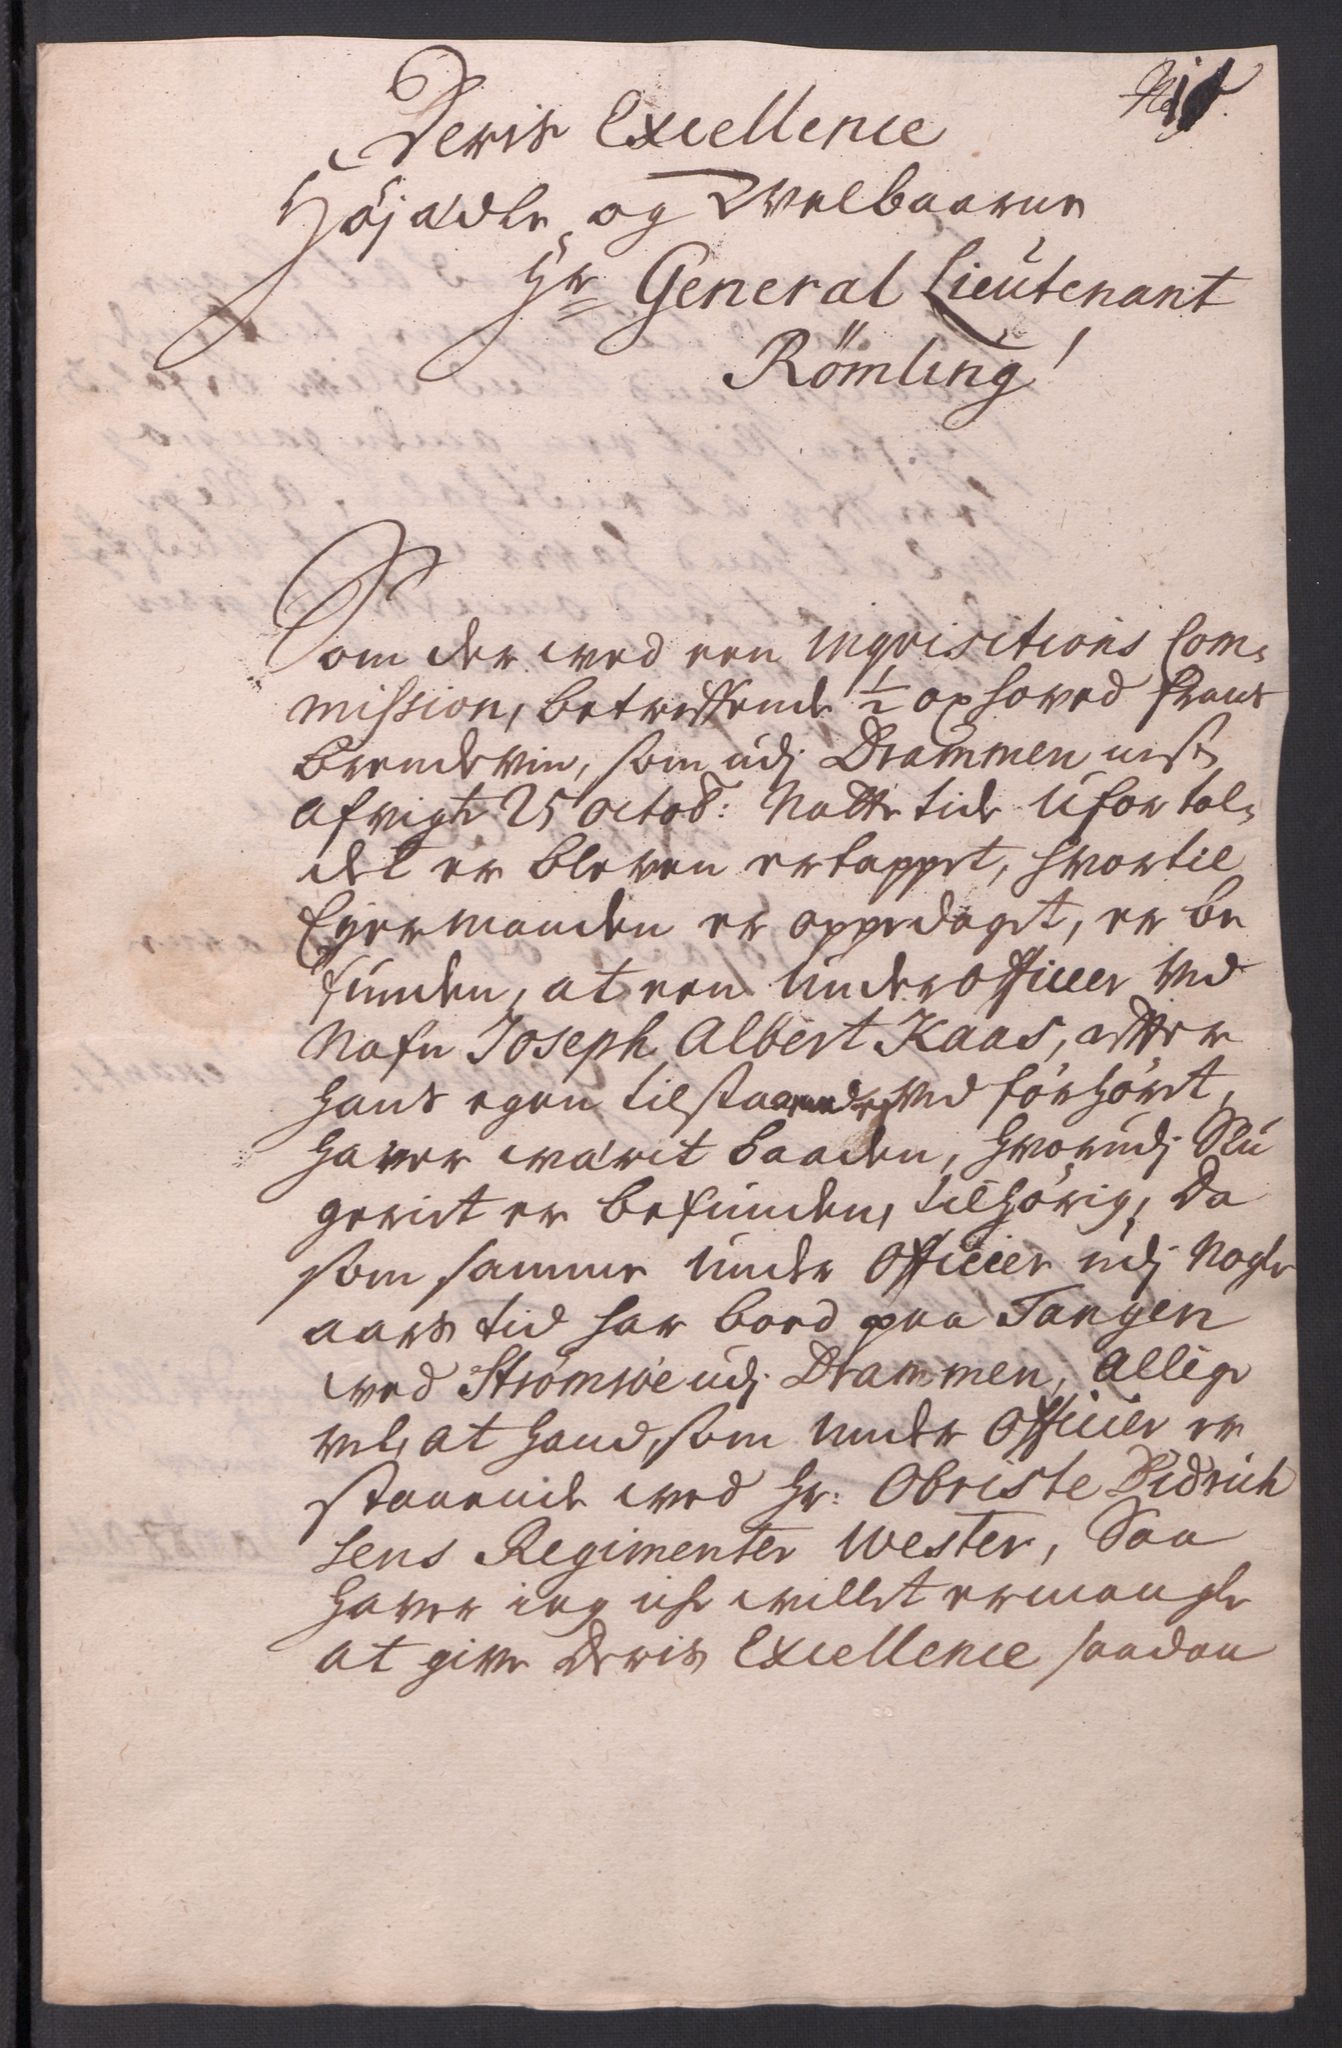 Deris Excellence
Høyædle og Welbaarne
Hr General Lieutenant
Römling!
Som der wed een Inqvisitions Com-
mission, betreffende ½ oxhoved frans
brendeviin, som udj Drammen nest
afvigte 25 Octob: Natte tide Ufortol-
det er bleven ertappet, hvortil
Eyermanden er oppedaget, er be
funden, at een Underofficeer ved
Nafn Joseph Albert Kaas, efter
hans egen tilstaaende ved forhøret,
haver wærit baaden, hvorudj Slu
geriet er befunden, tilhørig, Da
som samme Under Officier udj Nogle
aars tid har boed paa Tangen
wed Strømsøe udj Drammen, Allige
vel, at hand, som Under Officier er
staaende wed Hr: Obriste Didrich
sens Regimenter Wester, Saa
haver ieg icke willet ermangle
at give Deris Excellence saadan